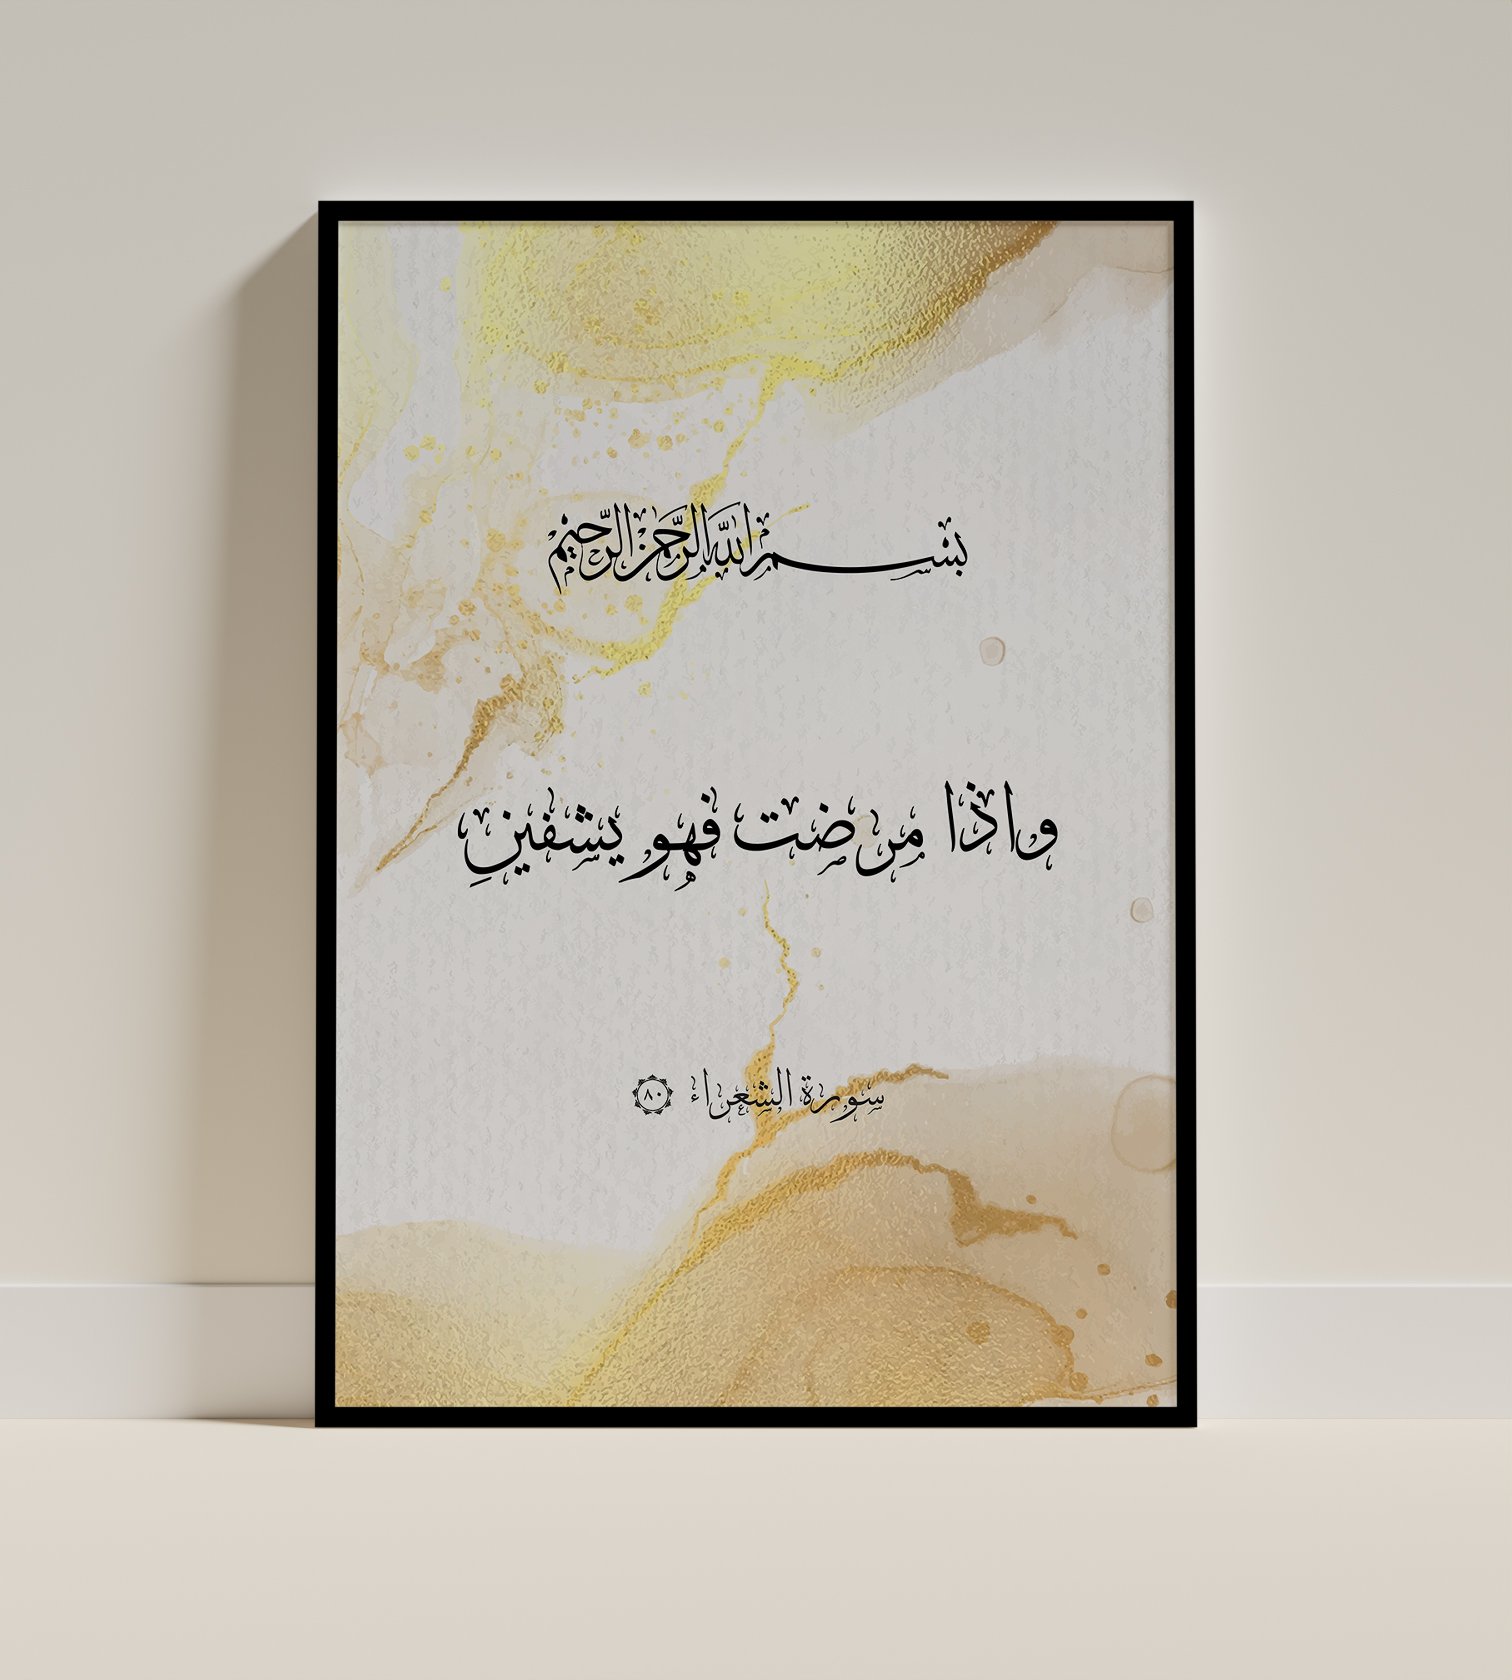 بسم الله الرحمن الرحيم
واذا مرضت فهو يشفينِ
سورة الشعراء ٨٠